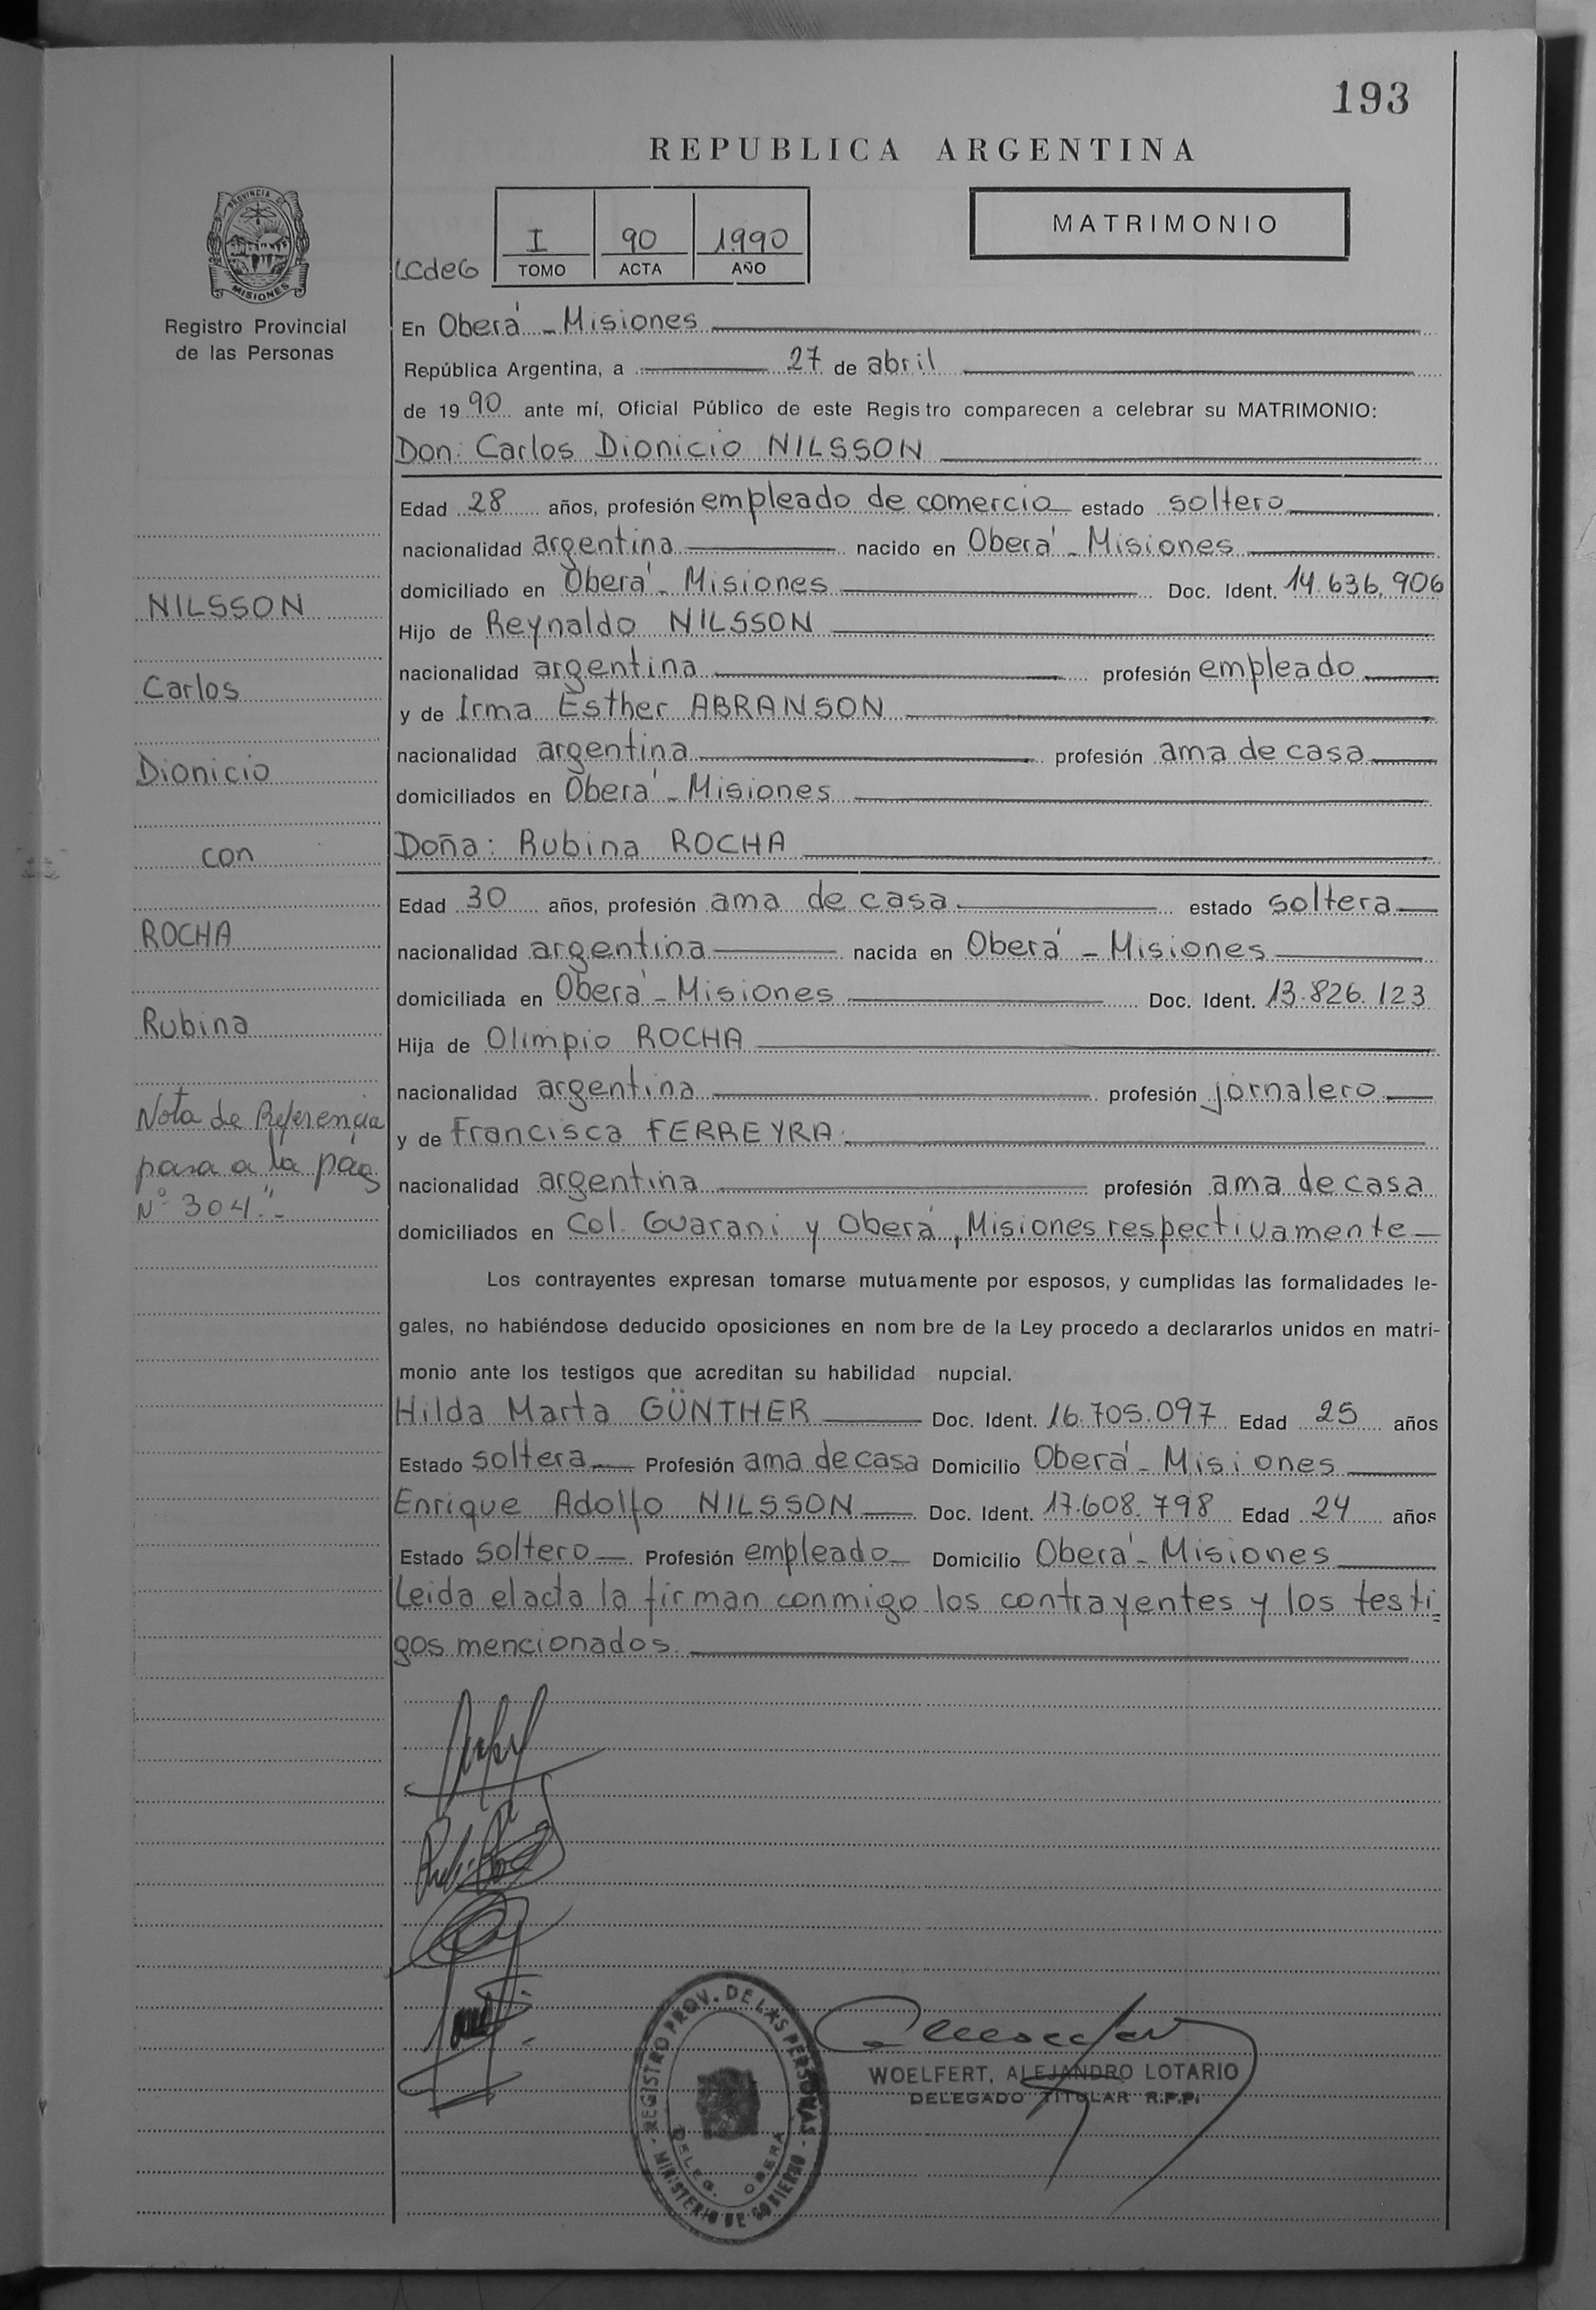 193
REPUBLICA ARGENTINA
PROVINCIA DE
MISIONES
Registro Provincial
de las Personas
LCdeG
I 90 1990
TOMO ACTA AÑO
MATRIMONIO
En Oberá - Misiones
República Argentina, a 27 de abril
de 1990 ante mí, Oficial Público de este Registro comparecen a celebrar su MATRIMONIO:
Don: Carlos Dionicio NILSSON
Edad 28 años, profesión empleado de comercio estado soltero
nacionalidad argentina nacido en Oberá - Misiones
domiciliado en Oberá - Misiones Doc. Ident. 14.636.906
Hijo de Reynaldo NILSSON
nacionalidad argentina profesión empleado
y de Irma Esther ABRANSON
nacionalidad argentina profesión ama de casa
domiciliados en Oberá - Misiones
Doña: Rubina ROCHA
Edad 30 años, profesión ama de casa estado soltera
nacionalidad argentina nacida en Oberá - Misiones
domiciliada en Oberá - Misiones Doc. Ident. 13.826.123
Hija de Olimpio ROCHA
nacionalidad argentina profesión jornalero
y de Francisca FERREYRA
nacionalidad argentina profesión ama de casa
domiciliados en Col. Guarani y Oberá, Misiones respectivamente
Los contrayentes expresan tomarse mutuamente por esposos, y cumplidas las formalidades le-
gales, no habiéndose deducido oposiciones en nombre de la Ley procedo a declararlos unidos en matri-
monio ante los testigos que acreditan su habilidad nupcial.
Hilda Marta GÜNTHER Doc. Ident. 16.705.097 Edad 25 años
Estado soltera Profesión ama de casa Domicilio Oberá - Misiones
Enrique Adolfo NILSSON Doc. Ident. 17.608.798 Edad 24 años
Estado soltero Profesión empleado Domicilio Oberá - Misiones
Leida el acta la firman conmigo los contrayentes y los testi=
gos mencionados.
NILSSON
Carlos
Dionicio
con
ROCHA
Rubina
Nota de Referencia
pasa a la pág
Nº 304".-
REGISTRO PROV. DE LAS PERSONAS
MINISTERIO DE GOBIERNO
DELEG. OBERA
WOELFERT, ALEJANDRO LOTARIO
DELEGADO TITULAR R.P.P.